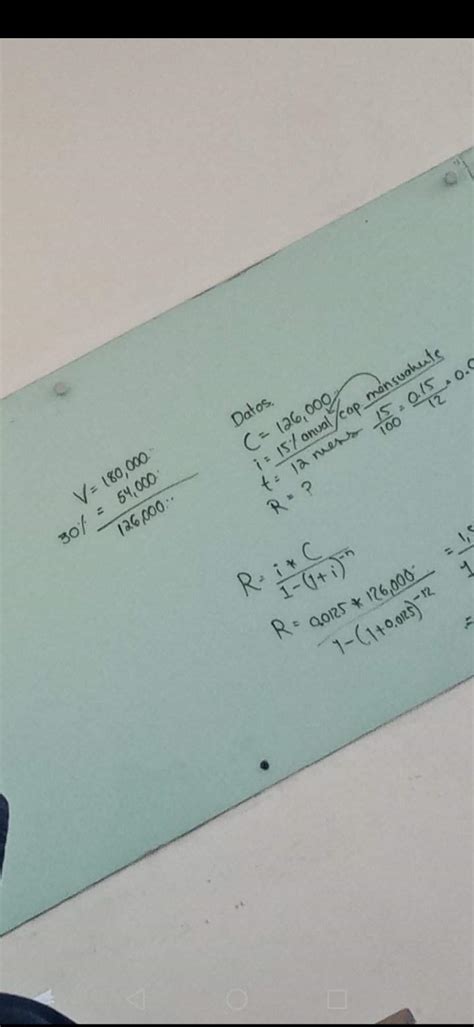 V = 180,000..
30% = 54,000.
126,000..
Datos
C = 126,000..
i = 15% anual/cap mensualmente
t = 12 meses 15/100 = 0.15/12 = 0.0
R = ?
R = i * C / 1-(1+i)^-n
R = 0.0125 * 126,000.. / 1-(1+0.0125)^-12 = 1, / 1
=